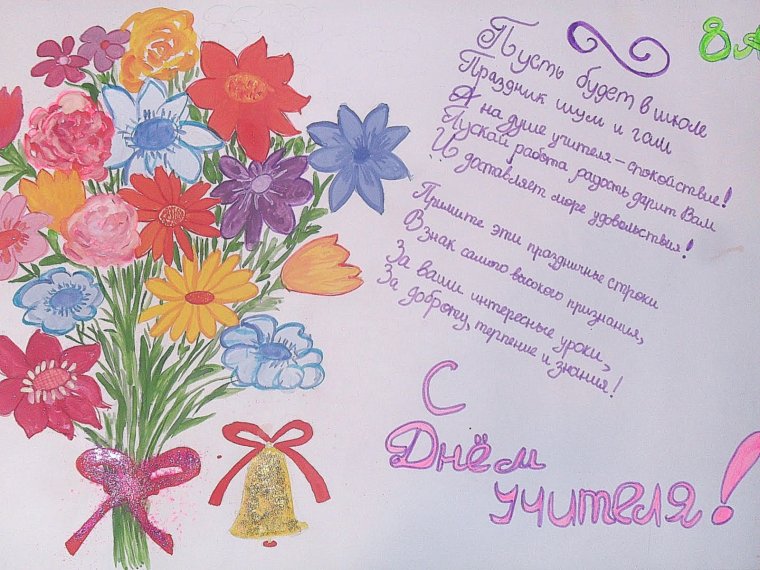 8 А
Пусть будет в школе
Праздник шум и гам
А на душе учителя – спокойствие!
Пускай работа радость дарит Вам
И доставляет море удовольствия!
Примите эти праздничные строки
В знак самого высокого признания,
За ваши интересные уроки,
За доброту, терпение и знания!
С
Днём
учителя!